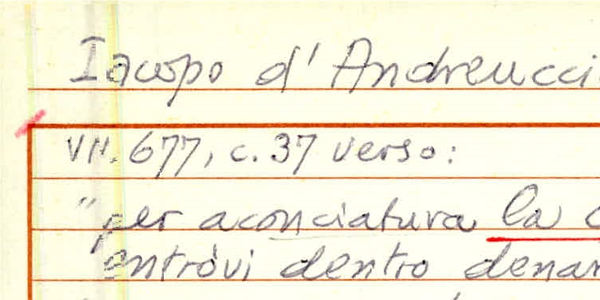 Iacopo d'Andreucci
VII. 677, c. 37 verso:
"per aconciatura la
entròvi dentro denar